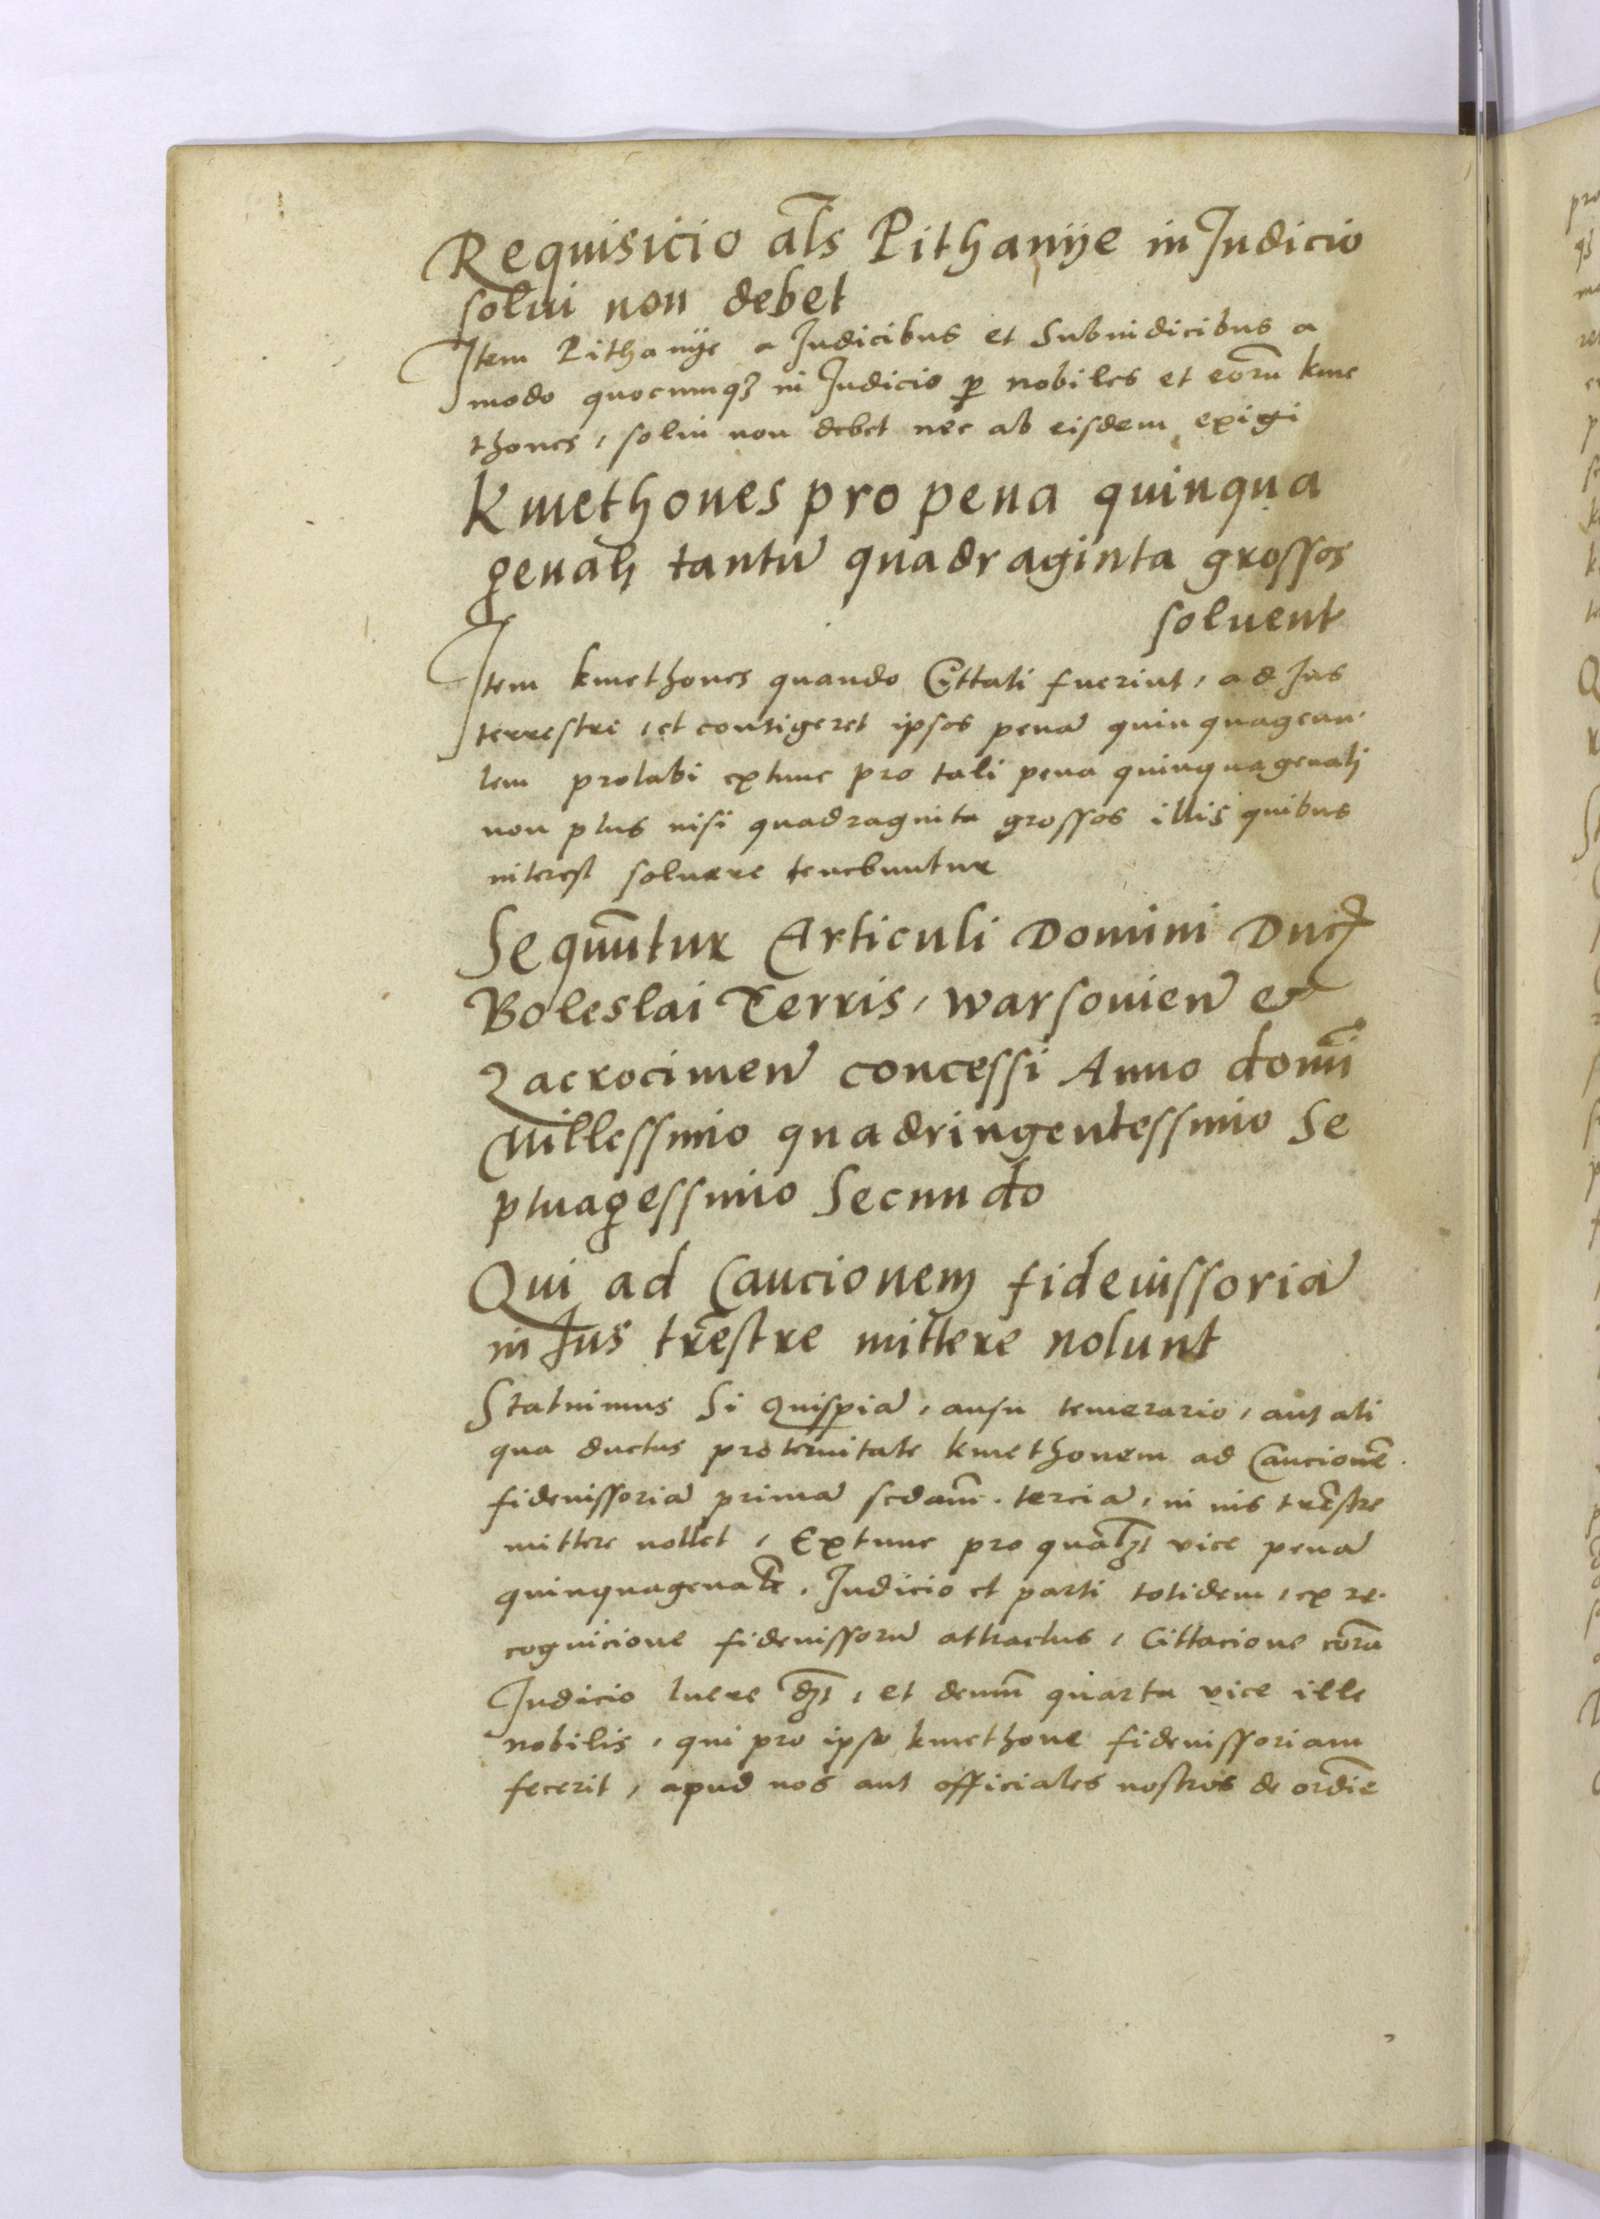 Requisicio al̃s Pithanÿe in Judicio
solui non debet
Item Pithanÿe a Judicibus et Subiudicibus a
modo quocunqꝫ in Judicio ꝑ nobiles et eorũ kme
thones, solui non debet nec ab eisdem exigi
Kmethones pro pena quinqua
genali tantũ quadraginta grossos
soluent
Item kmethones quando Cittati fuerint, ad Jus
terrestre, et contigeret ipsos penã quinquagena
lem prolabi extunc pro tali pena quinquagenali
non plus nisi quadraginta grossos illis quibus
interest soluere tenebuntur
Sequũtur Articuli Domini Ducꝭ
Boleslai Terris, warsouieñ et
Zacrocimeñ concessi Anno domĩ
Millessimo quadringentessimo Se
ptuagessimo Secundo
Qui ad Caucionem fideiussoriã
in Jus tr̃estre mittere nolunt
Statuimus Si Quispiã, ausu temerario, aut ali
qua ductus proteruitate kmethonem ad Caucionẽ
fideiussoriã primã scdam̃. terciã, in ius tr̃estre
mittere nollet, Extunc pro qual̃ꝫ vice penã
quinquagenalẽ. Judicio et parti totidem, ex re
cognicione fideiussorũ attractus, Cittacione corã
Judicio luere dꝫ, et demũ quarta vice ille
nobilis, qui pro ipso kmethone fideiussoriam
fecerit, apud nos aut officiales nostros de ordiẽ